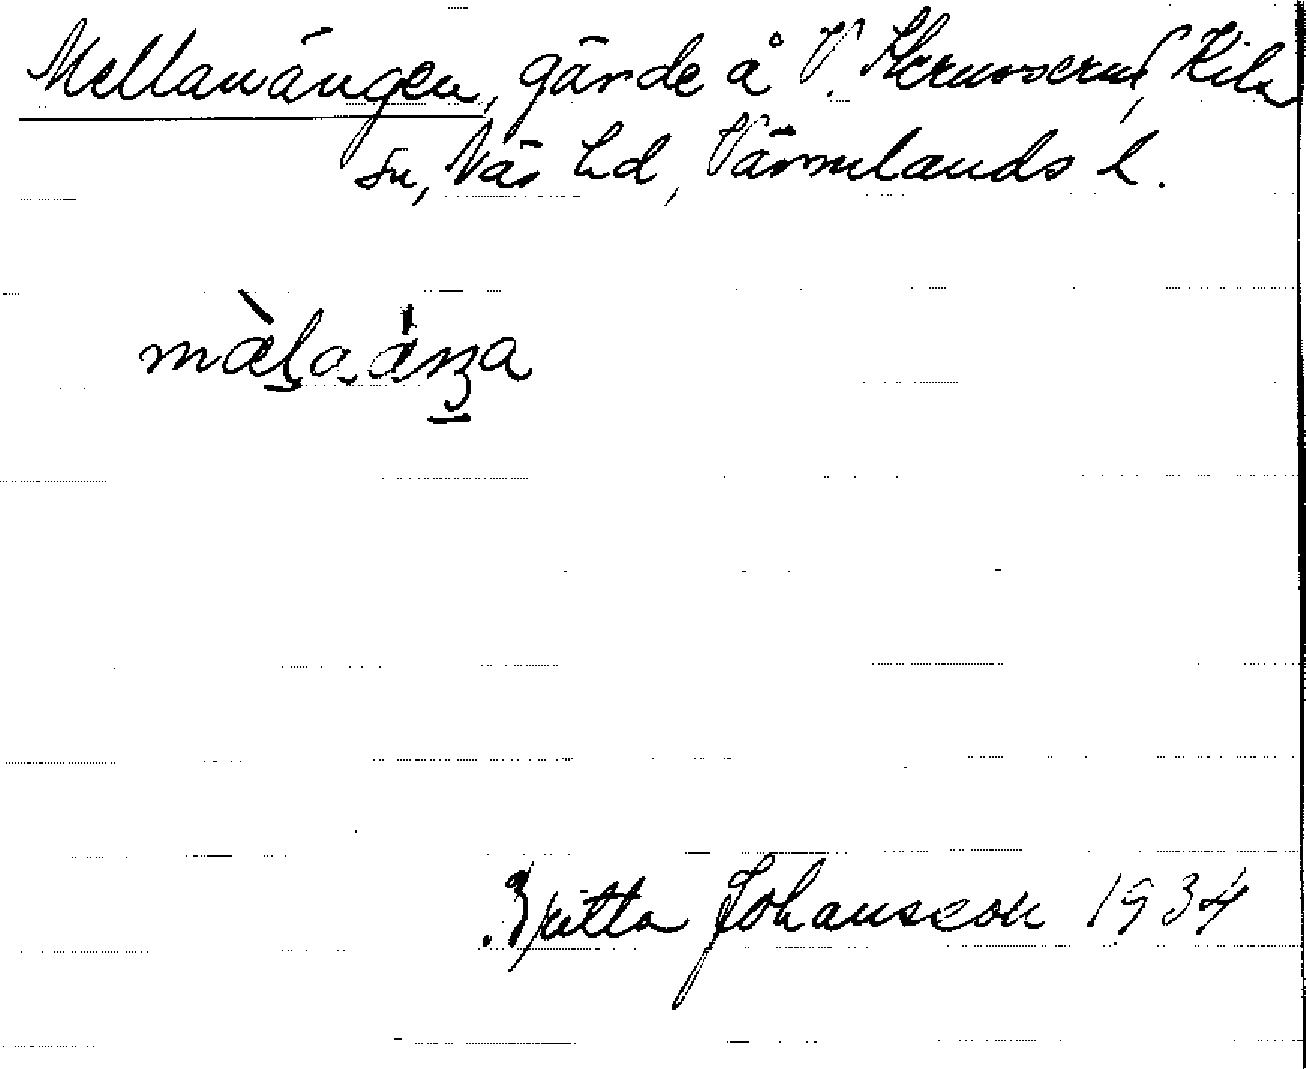 Mellanängen, gärde å V. Skruvserud, Kila
Sn, Näs hd, Värmlands l.
Britta Johansson 1934